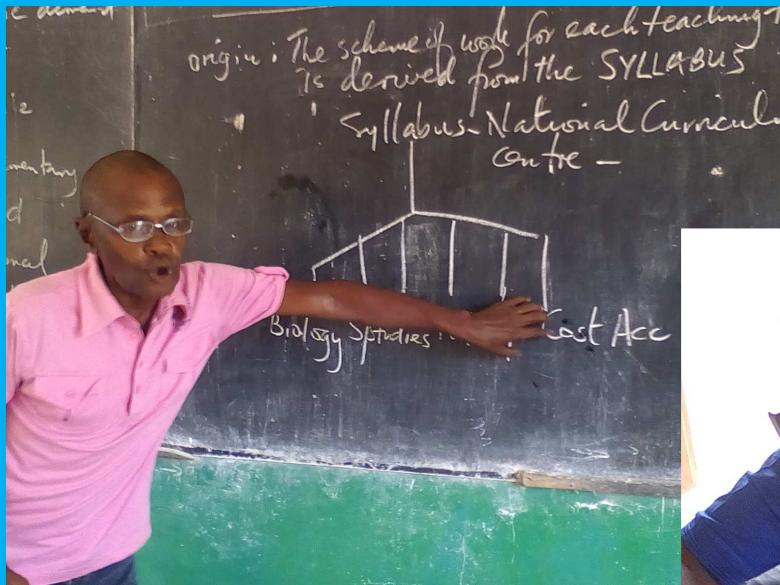 e demand
ic
mentary
d
mal
origin: The scheme of work for each teaching
is derived from the SYLLABUS
Syllabus - National Curricul
centre -
Biology Sptudies
Cost Acc